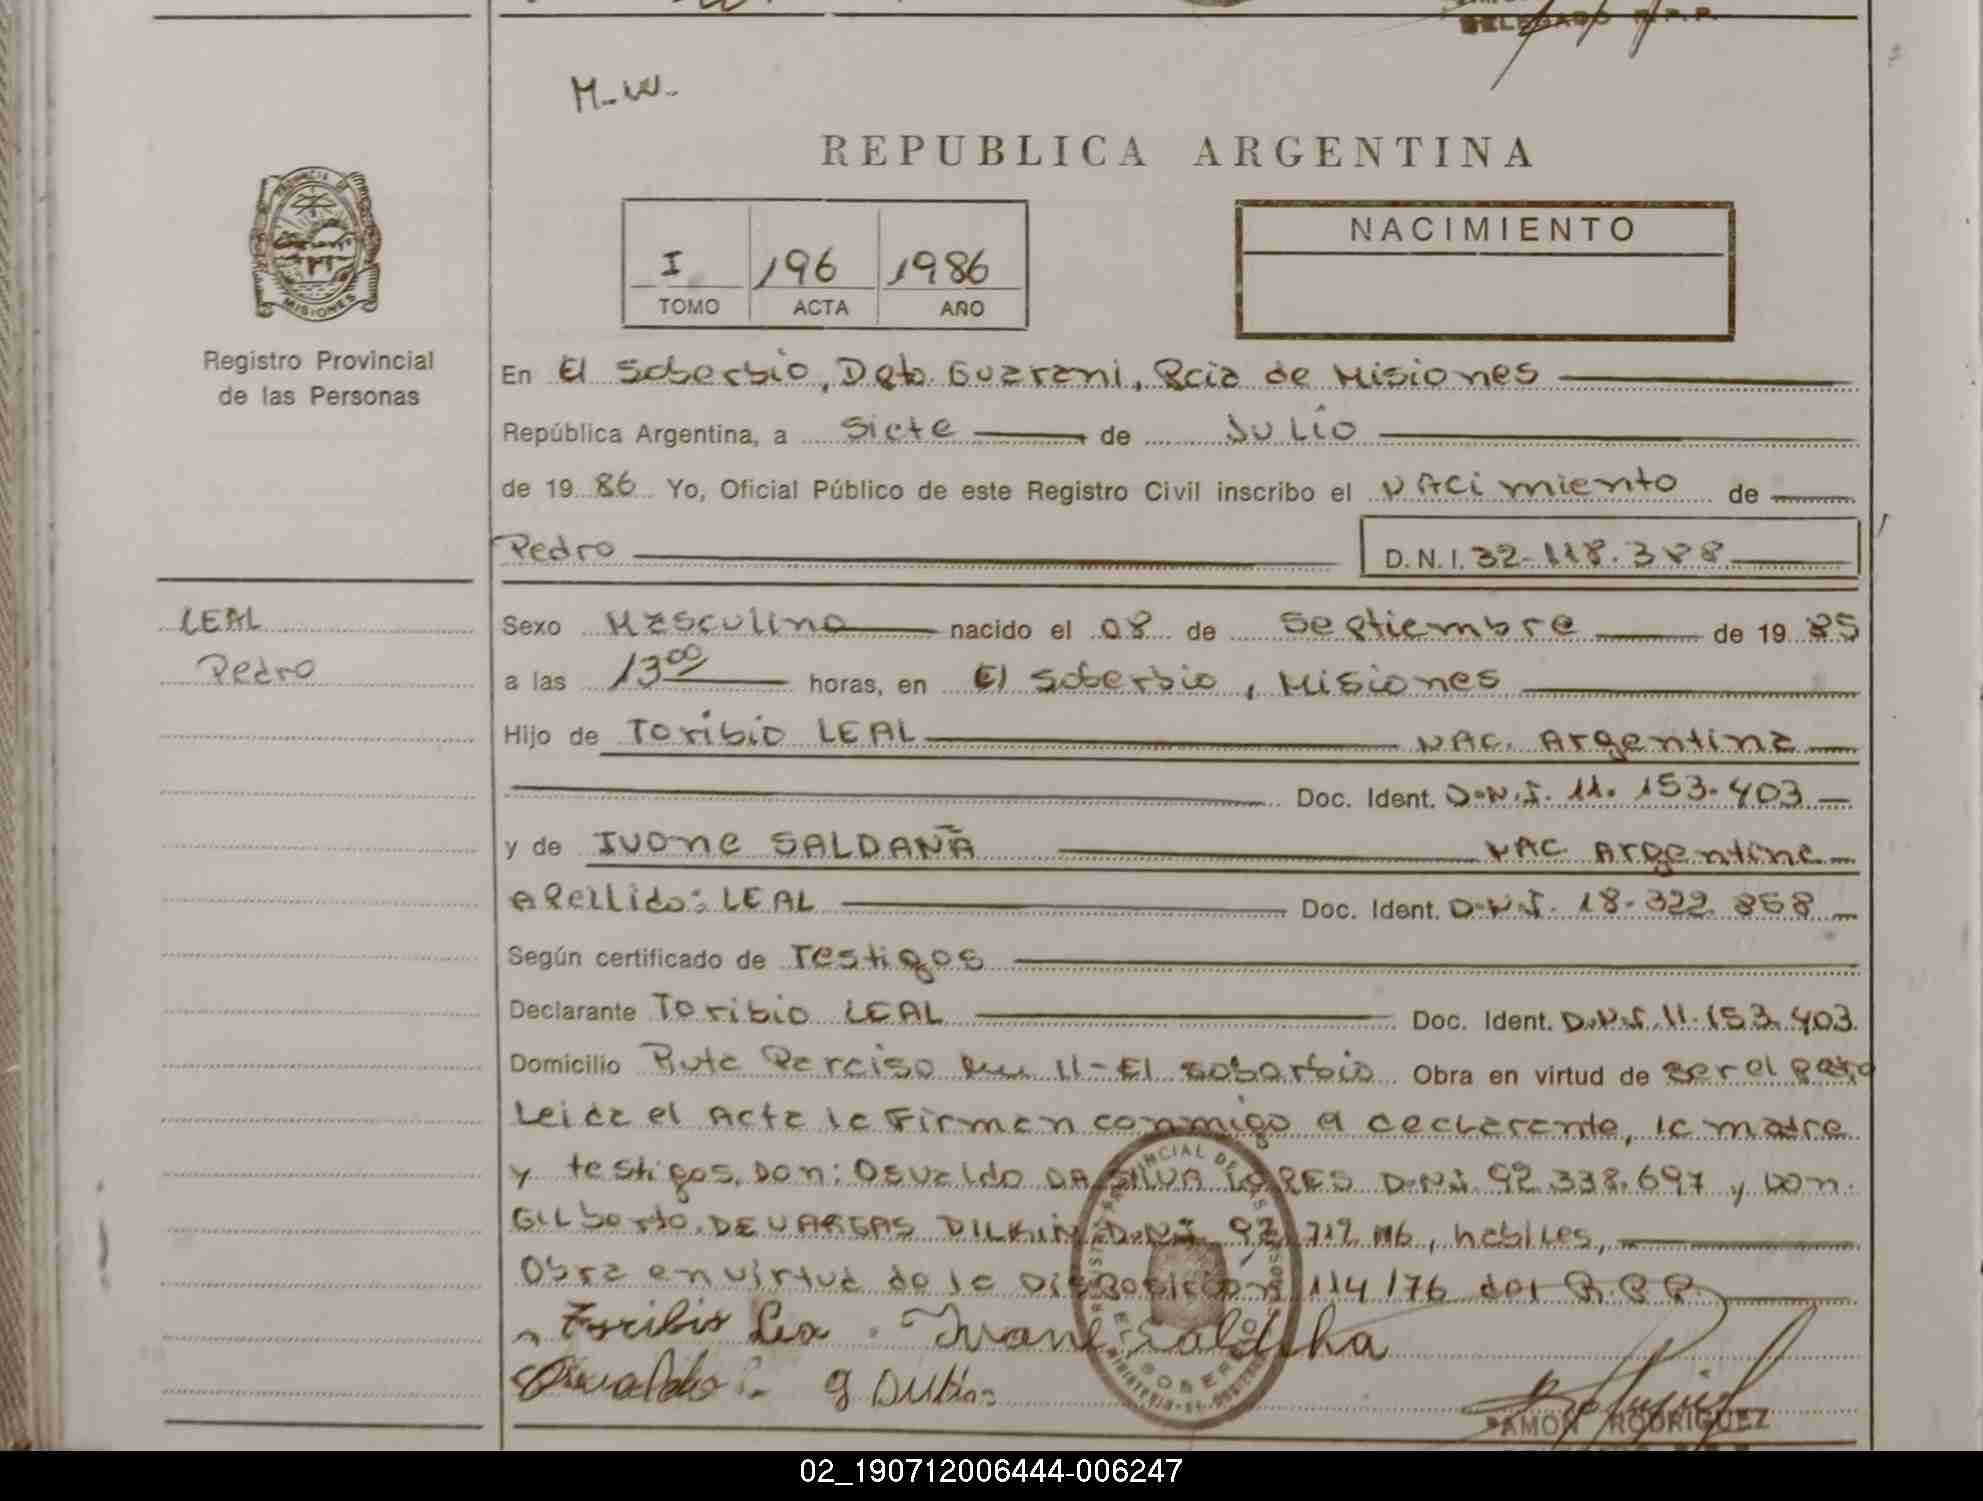 DELEGADO R.P.P.
M-W-
REPUBLICA ARGENTINA
PROVINCIA DE
MISIONES
NACIMIENTO
I 196 1986
TOMO ACTA AÑO
Registro Provincial
de las Personas
En El Soberbio, Dpto. Guarani, Pcia de Misiones
República Argentina, a siete de Julio
de 1986 Yo, Oficial Público de este Registro Civil inscribo el Nacimiento de
Pedro D.N.I. 32.118.388
LEAL
Pedro
Sexo Masculino nacido el 08 de Septiembre de 1985
a las 13 00 horas, en El Soberbio, Misiones
Hijo de Toribio LEAL NAC. Argentina
Doc. Ident. D.N.I. 11.153.403
y de Ivone SALDAÑA NAC Argentina
apellido: LEAL Doc. Ident. D.N.I. 18.322.858
Según certificado de Testigos
Declarante Toribio LEAL Doc. Ident. D.N.I. 11.153.403
Domicilio Ruta Km 11-El soberbio Obra en virtud de ser el padre
Leida el Acta la Firman conmigo el declarante, la madre
y testigos, Don: Osvaldo DA SILVA D.N.I 92.338.697 y Don
Gilberto DE VARGAS D.N.I 92.712, habiles,
Obra en virtud de la Disposicion 114/76 del R.P.P.
Toribio Leal Ivane Saldanha
Osvaldo
RAMON RODRIGUEZ
02_190712006444-006247